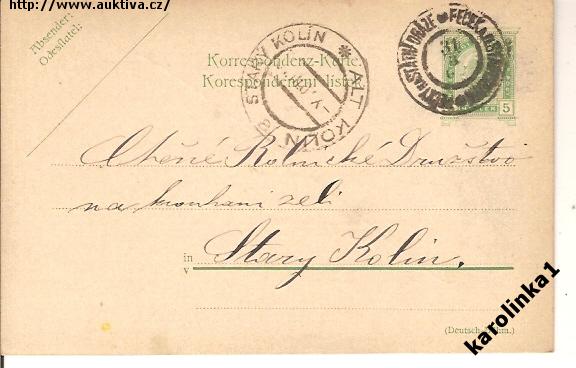 http://www.auktiva.cz/
Absender:
Odesílatel:
Korrespondenz-Karte.
Korespondenční lístek.
STARÝ KOLÍN * ALT KOLIN
5
Ctěné Rolnické Družstvo
na krouhani zelí
in
v
Starý Kolín.
(Deutsch-Böhm.)
karolinka1